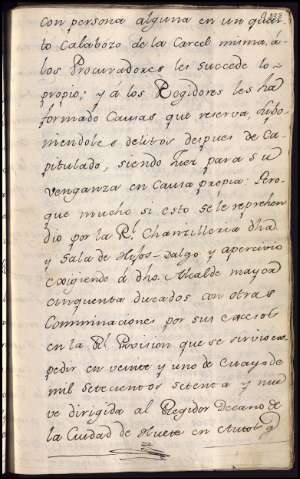 con persona alguna en un quar
to calabozo de la Carcel misma, á
los Procuradores les succede lo
propio; y a los Regidores les há
formado Causas que reserva,
niendoles delitos despues de ca-
pitulado, siendo Juez para su
venganza en Causa propia: Pero
que mucho si esto se le reprehen
dio por la Rl. Chanzilleria dha.
y Sala de Hijos-dalgo y apercivio
exigiendo á dho. Alcalde mayor
cinquenta ducados con otras
Comminaciones por sus excesos
en la Rl. Provision que se sirvio ex
pedir en veinte y uno de Mayo de
mil setecientos setenta y nue
ve dirigida al Regidor Decano de
la Ciudad de Huete en Autos q.